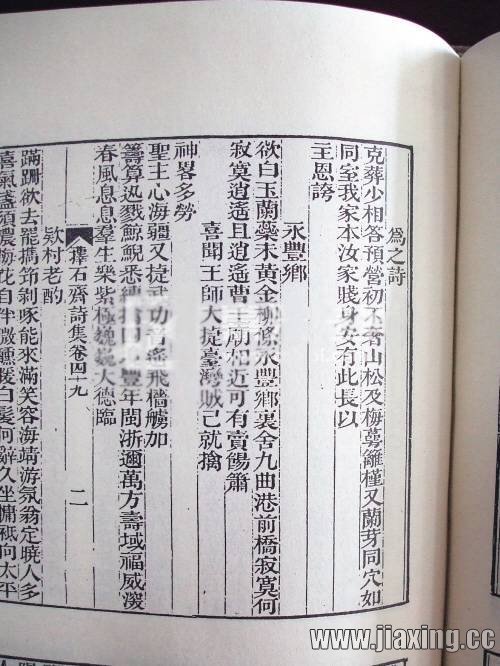 爲之詩
克葬少相答預營初不者山松及梅萼籬槿又蘭芽同穴如
同室我家本汝家賤身安有此長以
主恩誇
永豐鄉
欲白玉蘭蘂未黃金柳條永豐鄉裏舍九曲港前橋寂寞何
寂寞逍遙且逍遙曹王廟加近可有賣餳簫
喜聞王師大捷臺灣賊已就擒
神畧多勞
聖主心海疆又捷武功音飛檣艣加
籌算迅戮鯨鯢悉縛擒回地豐年閩浙邇萬方壽域福威深
春風息息羣生樂紫極巍巍大德臨
擇石齋詩集卷四十九 二
欵村老酌
蹣跚欲去罷攜笻剝啄能來滿笑容海靖游氛翁定曉人多
喜氣盞須濃梅花自伴微醺援白髮何辭久坐慵祗向太平
www.jiaxing.cc